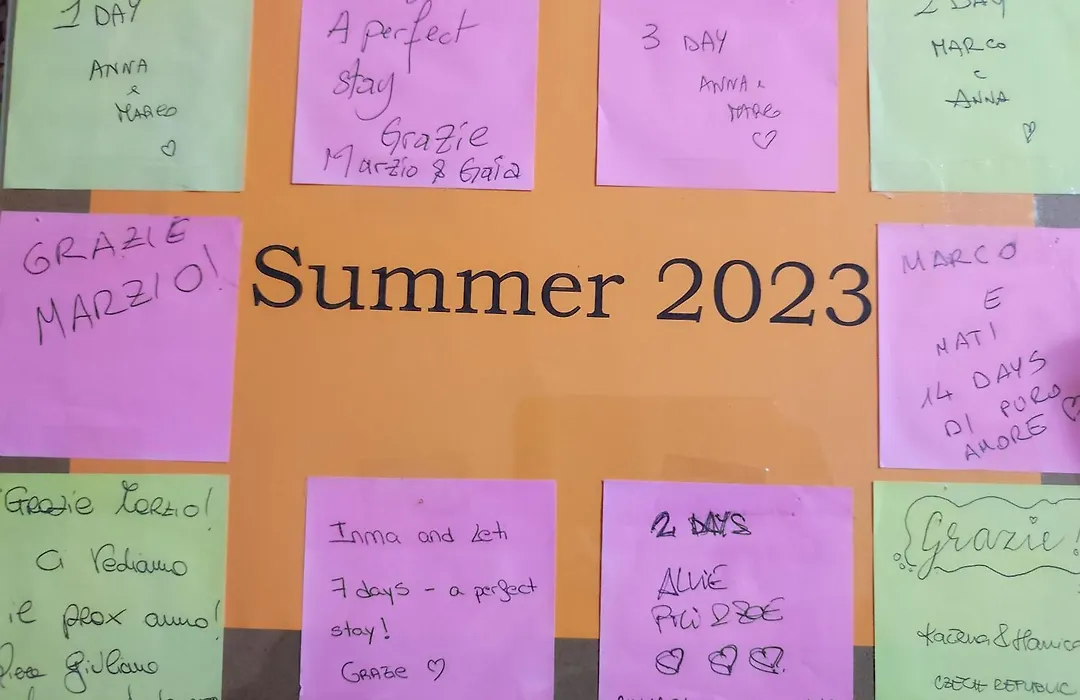 1 DAY
ANNA
e
MARCO
A perfect
stay
Grazie
Marzio & Gaia
3 DAY
ANNA e
MARCO
2 DAY
MARCO
e
ANNA
GRAZIE
MARZIO!
Summer 2023
MARCO
E
MATI
14 DAYS
DI PURO
AMORE
Grazie Marzio!
Ci Vediamo
il prox anno!
Giuliano
Inma and Leti
7 days - a perfect
stay!
GRAZIE
2 DAYS
ALLIE
PILI & ZOE
Grazie!
& Hanica
CZECH REPUBLIC